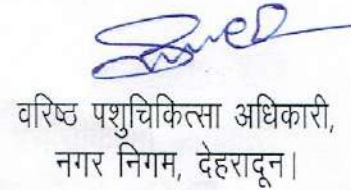 वरिष्ठ पशुचिकित्सा अधिकारी,
नगर निगम, देहरादून।